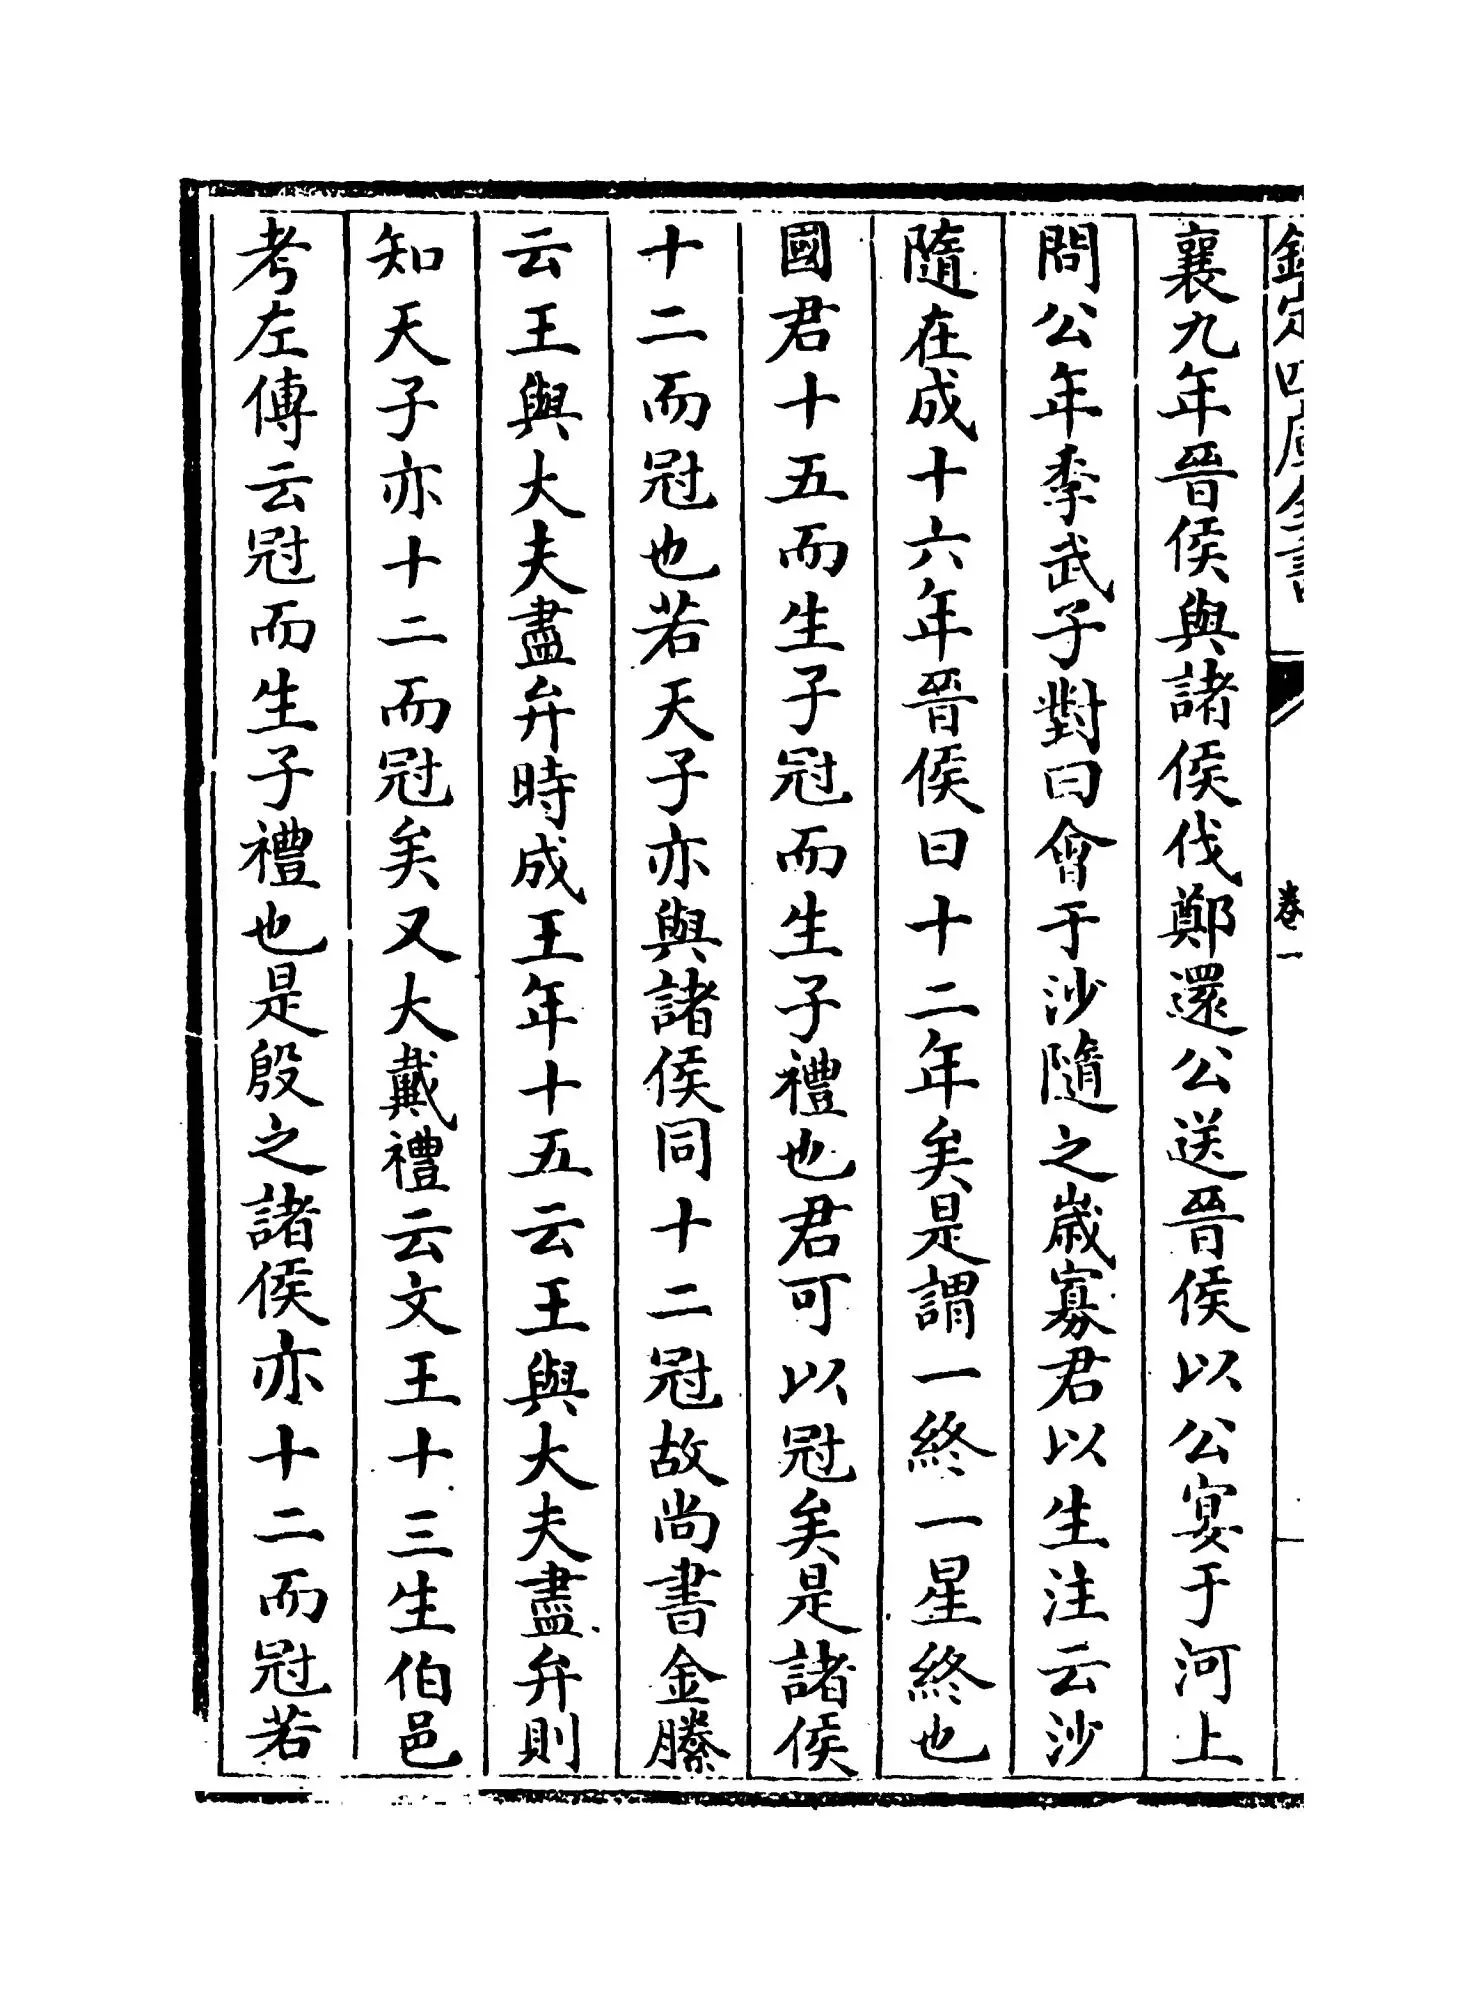 欽定四庫全書
卷一
襄九年晉侯與諸侯伐鄭還公送晉侯以公宴于河上
問公年季武子對曰會于沙隨之歲寡君以生注云沙
隨在成十六年晉侯曰十二年矣是謂一終一星終也
國君十五而生子冠而生子禮也君可以冠矣是諸侯
十二而冠也若天子亦與諸侯同十二冠故尚書金縢
云王與大夫盡弁時成王年十五云王與大夫盡弁則
知天子亦十二而冠矣又大戴禮云文王十三生伯邑
考左傳云冠而生子禮也是殷之諸侯亦十二而冠若